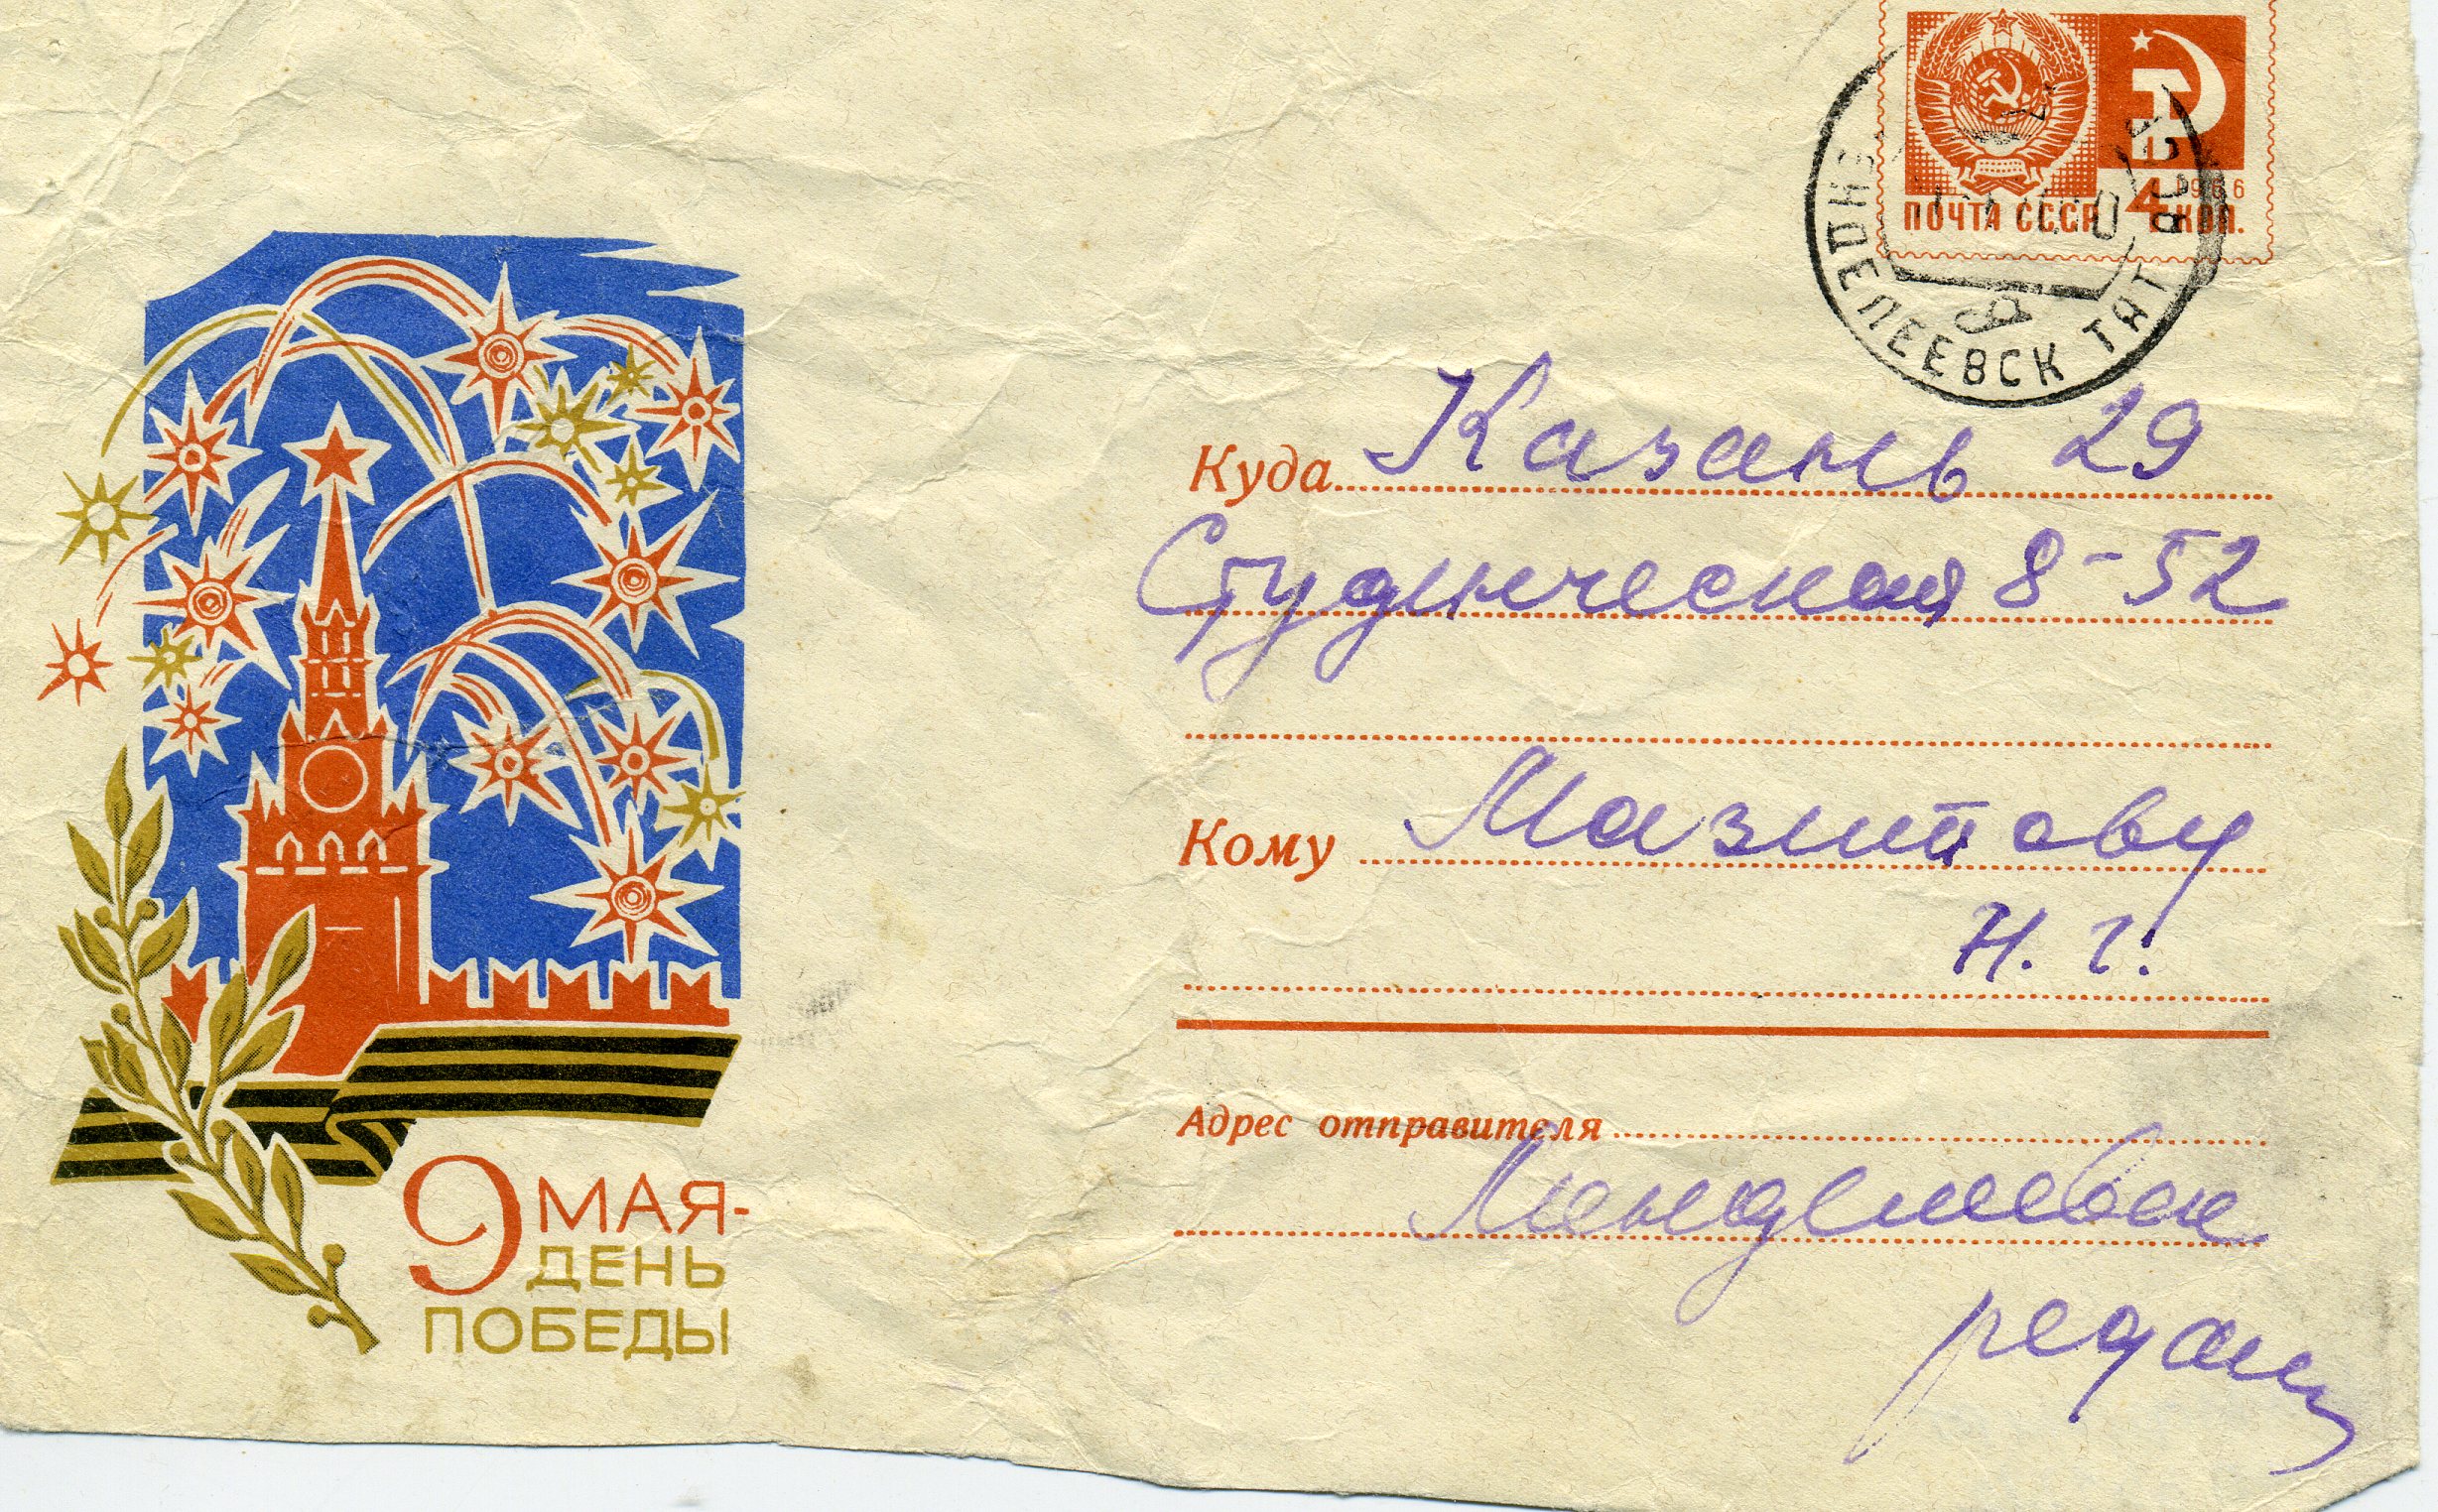 ПОЧТА СССР 4 КОП.
1966
МЕНДЕЛЕЕВСК ТАТ АССР
Куда Казань 29
Студенческая 8-52
Кому Мазитову
Н. Г.
Адрес отправителя
Менделеевск
9 МАЯ-
ДЕНЬ
ПОБЕДЫ